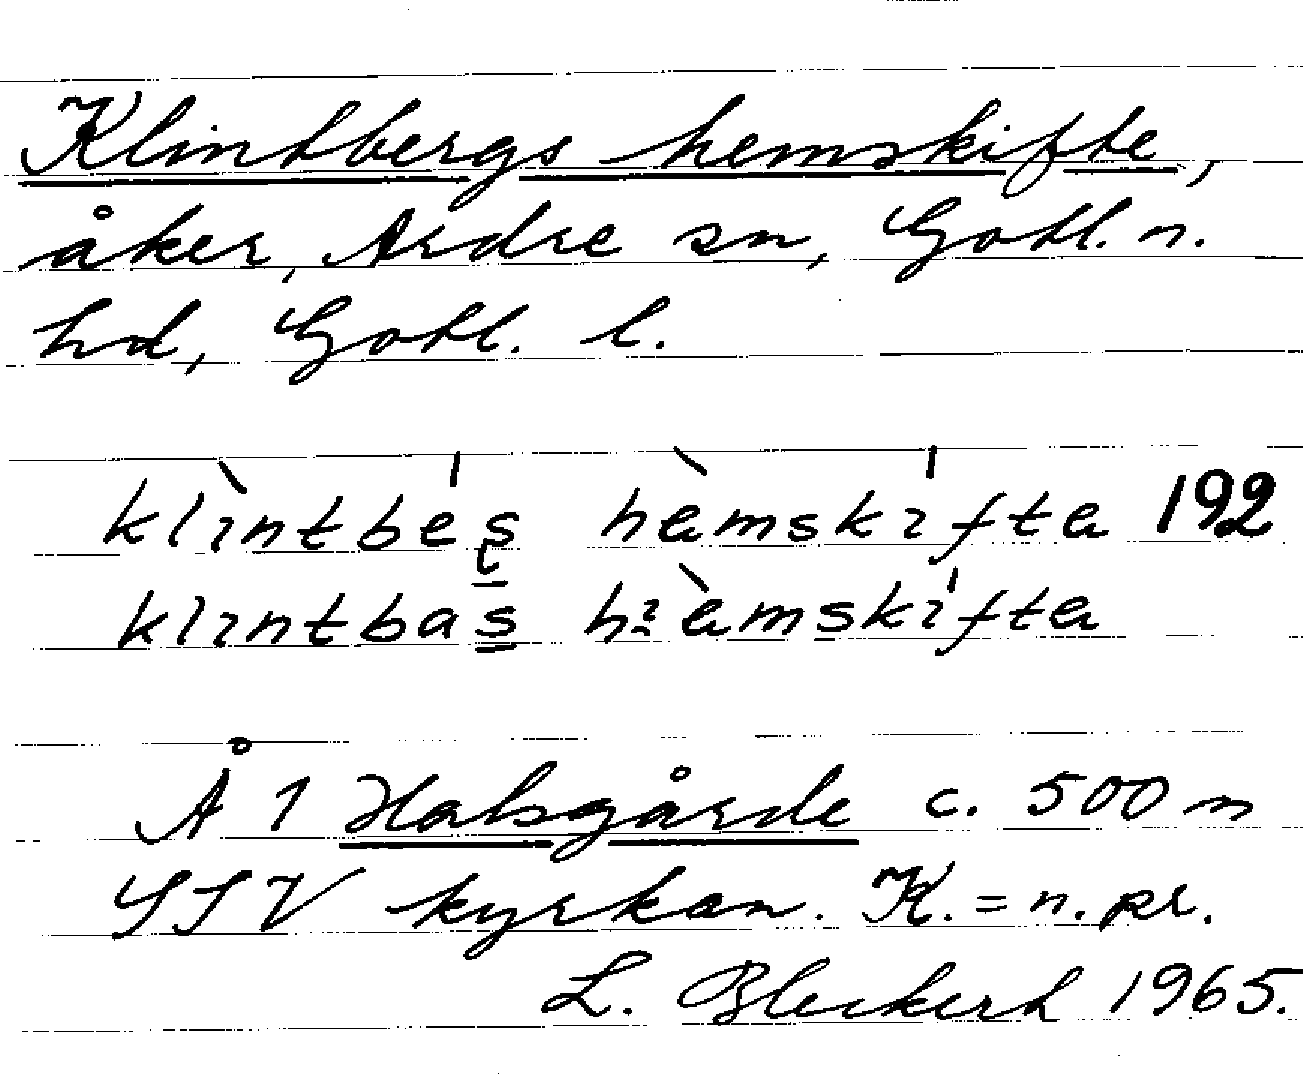 Klintbergs hemskifte,
åker, Ardre sn, Gotl. n.
hd, Gotl. l.
klìntbe̍ş hèmskı̍fta 192
klıntbas hıèmskı̍fta
Å 1 Halsgårde c. 500 m
SSV kyrkan. K. = n. pr.
L. Bleckert 1965.